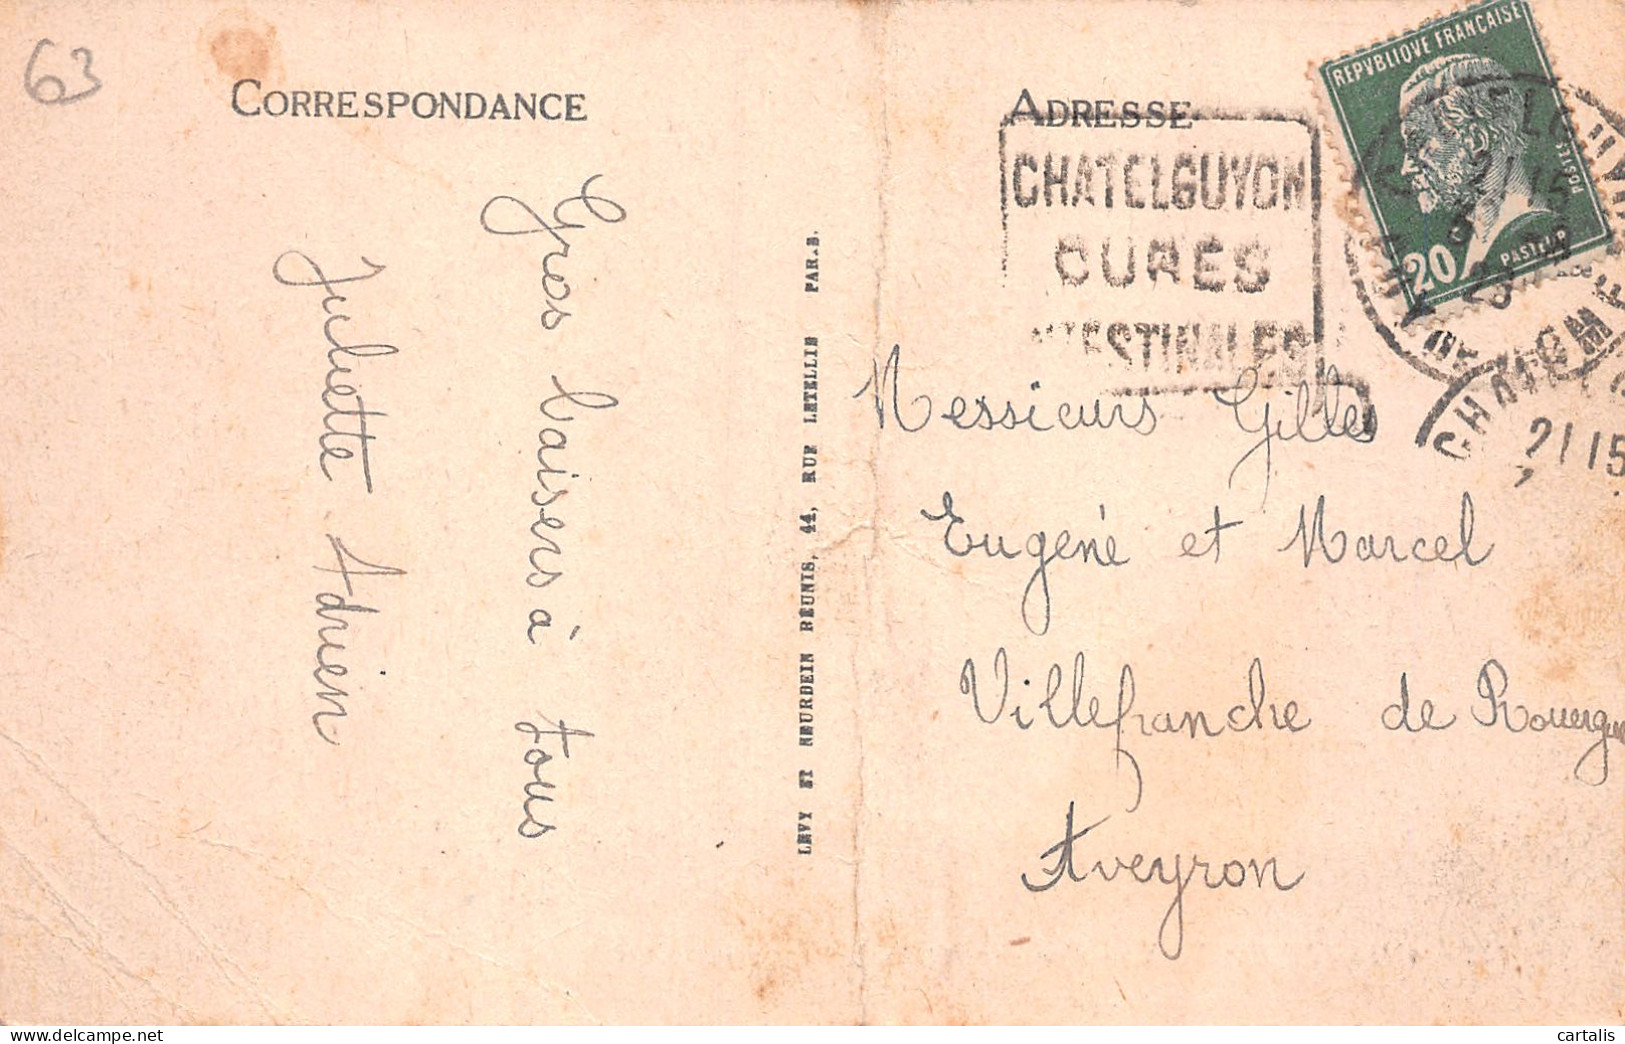 63
CORRESPONDANCE
Gros baisers à tous
Juliette Adrien
LEVY ET NEURDEIN RÉUNIS, 44, RUE LETELLIE PAR.S.
ADRESSE
CHATELGUYON
CURES
REPVBLIQVE FRANÇAISE
POSTES
20
PASTEUR
21 15
23
CHATEL
21 15
Messieurs Gilles
Eugéné et Marcel
Villefranche de Rouergue
Aveyron
cartalis